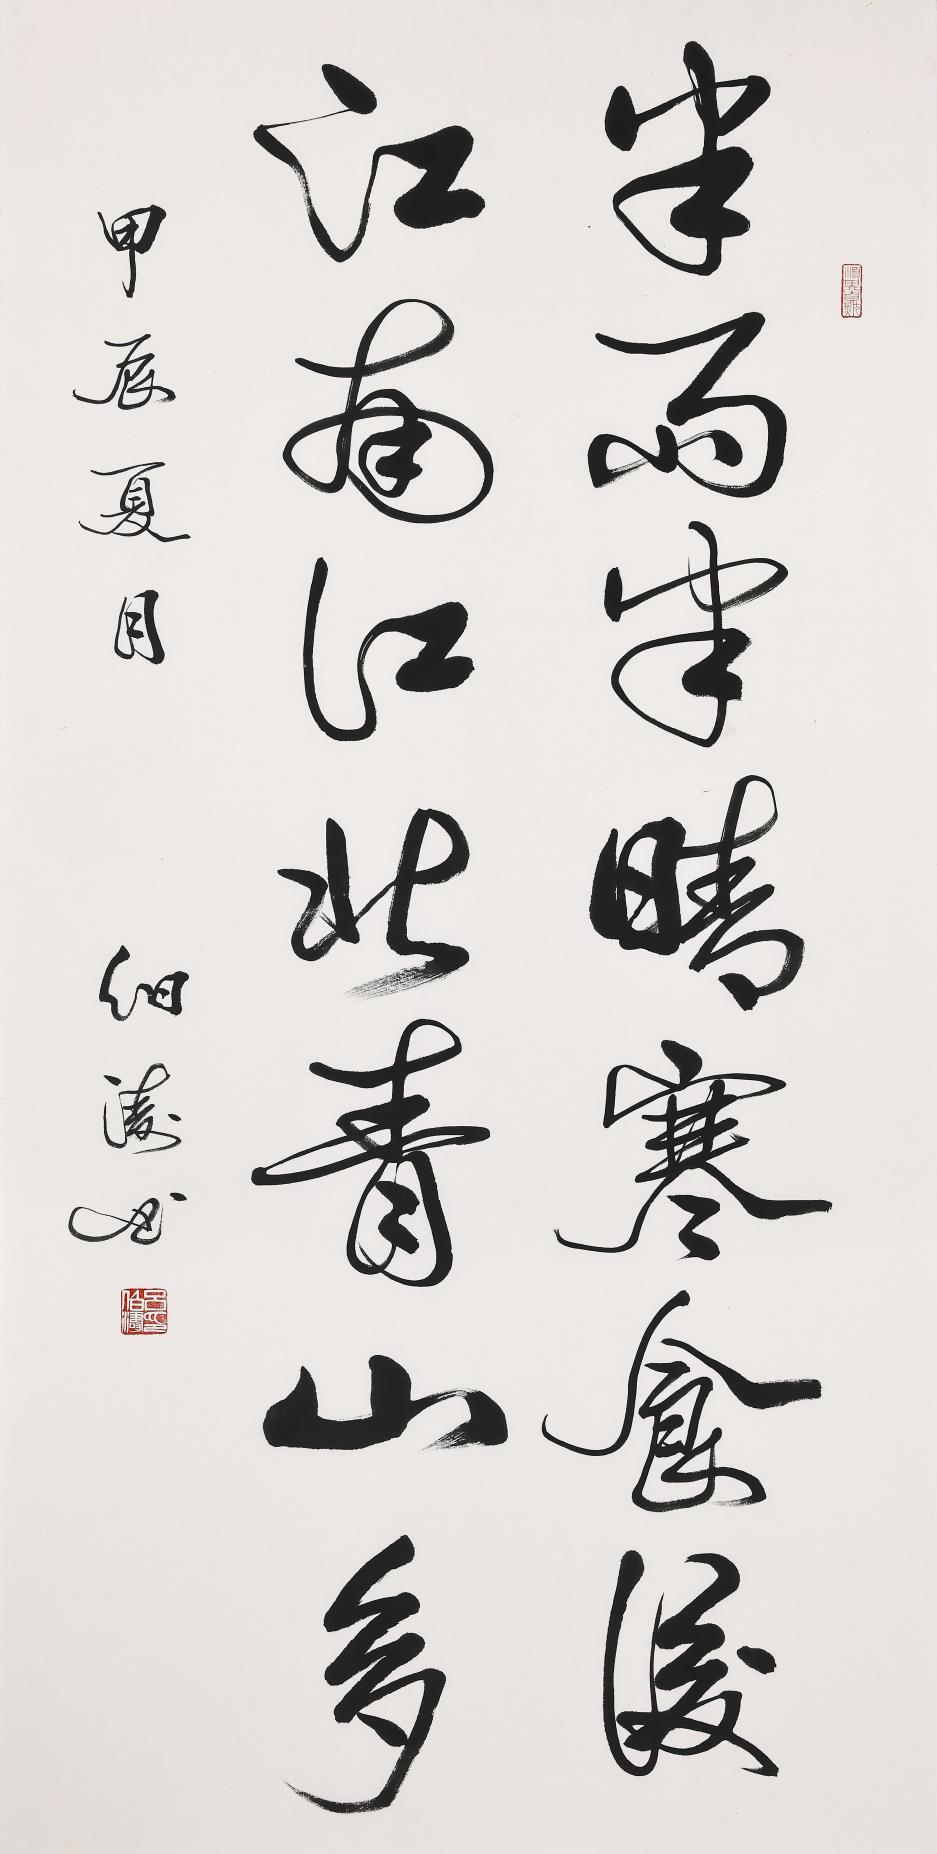 半雨半晴寒食後
江南江北青山多
甲辰夏月
伯濤書